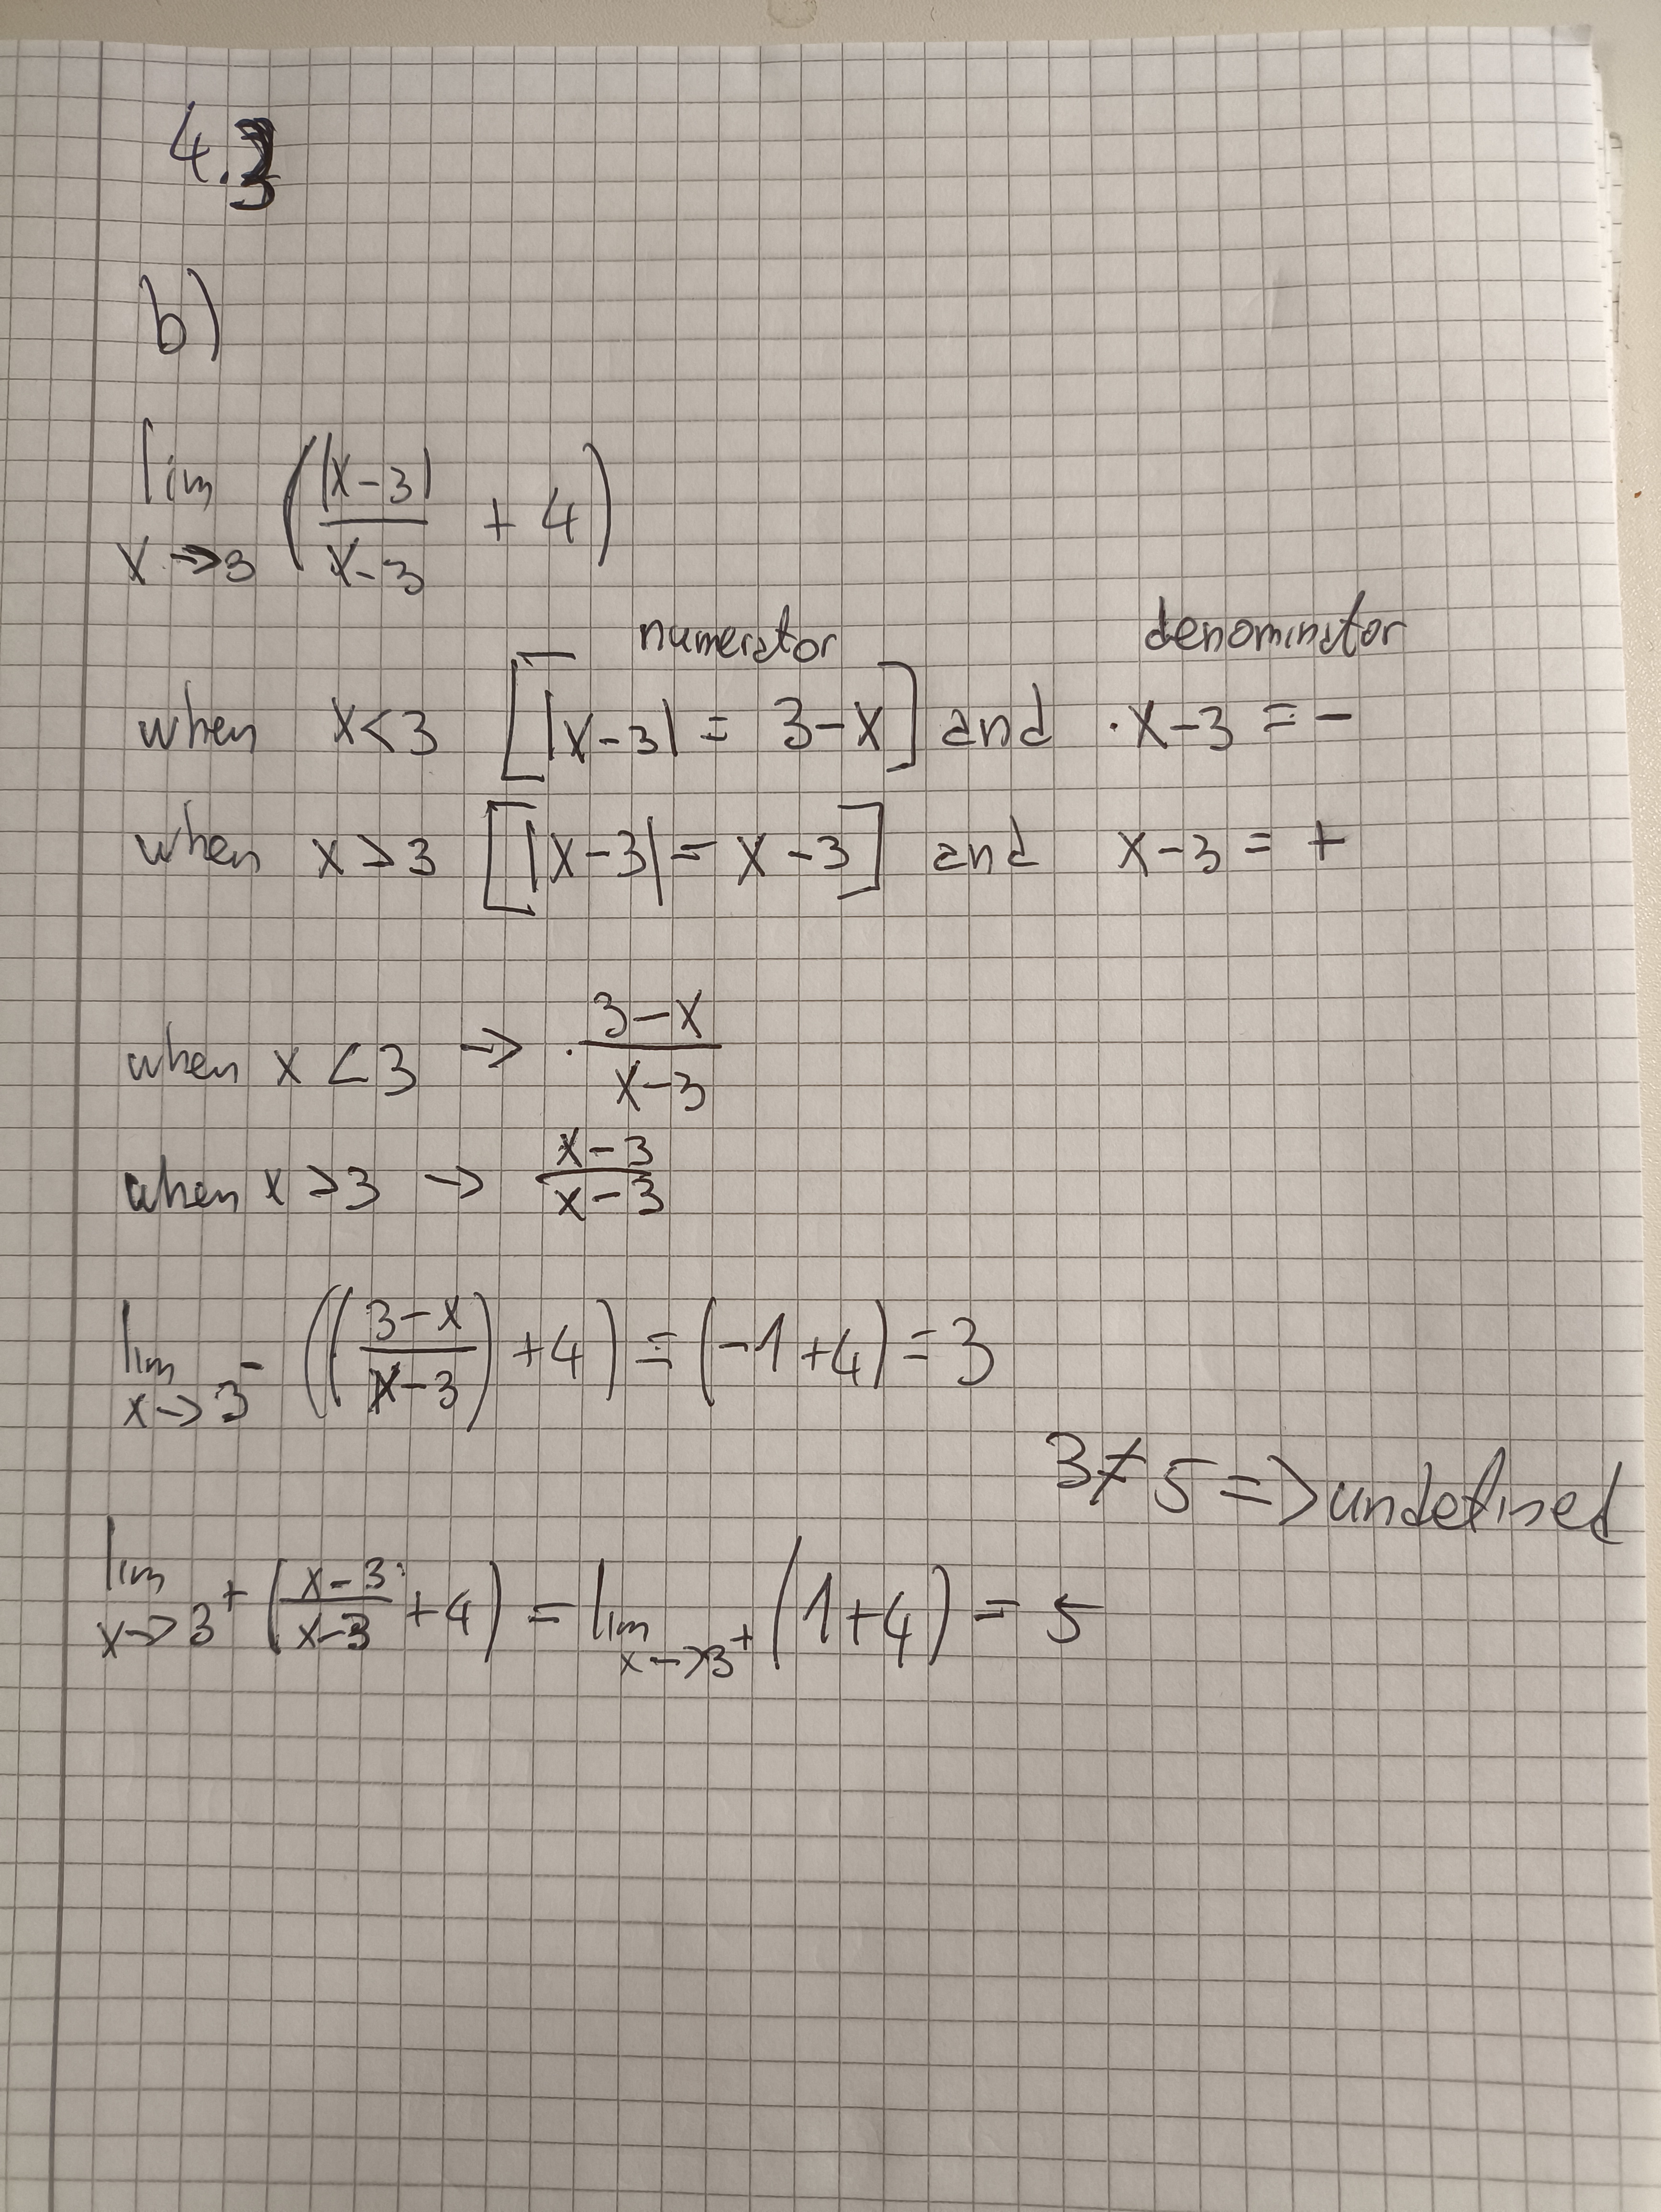 4.3
b)
lim x→3 (|x-3|/(x-3) + 4)
numerator denominator
when x<3 [|x-3| = 3-x] and ·x-3 = -
when x>3 [|x-3| = x-3] and x-3 = +
when x<3 → (3-x)/(x-3)
when x>3 → (x-3)/(x-3)
lim x→3⁻ (((3-x)/(x-3)) + 4) = (-1+4) = 3
3≠5 => undefined
lim x→3⁺ ((x-3)/(x-3) + 4) = lim x→3⁺ (1+4) = 5